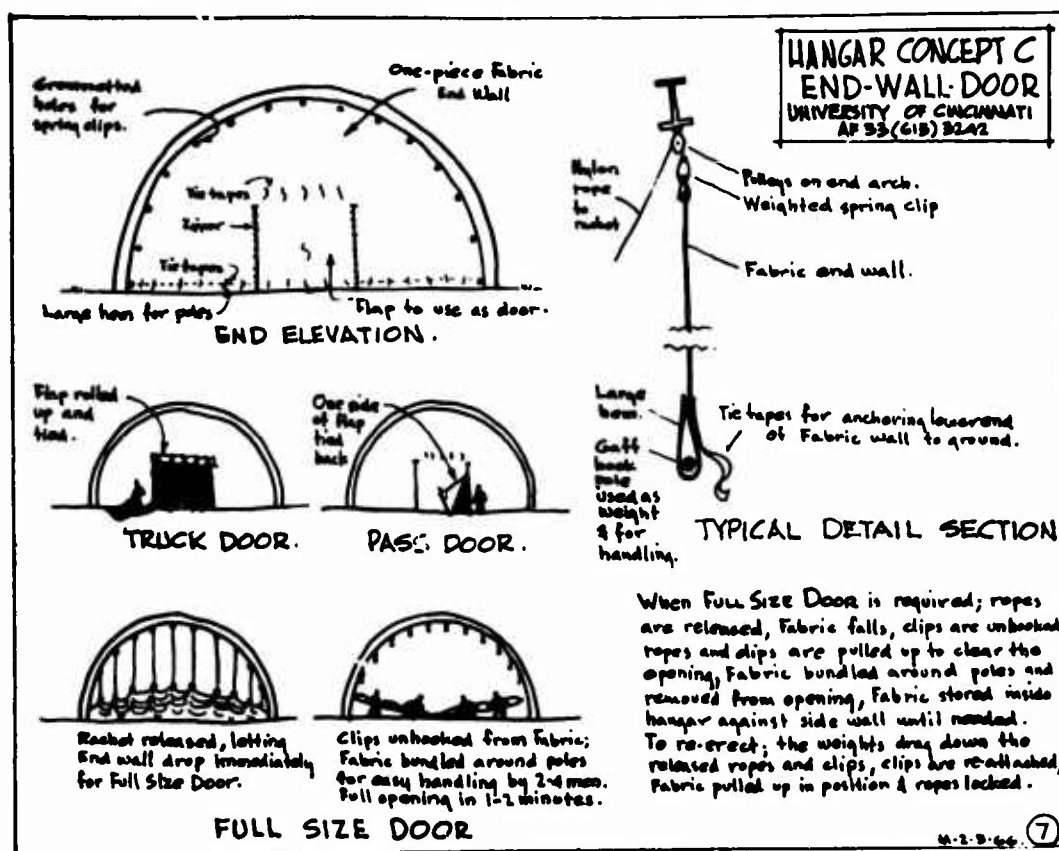 HANGAR CONCEPT C
END-WALL-DOOR
UNIVERSITY OF CINCINNATI
AF 33(615) 3242
Grommetted
holes for
spring clips.
One-piece Fabric
End Wall
Tie tapes
Zipper
Tie tapes
Large hem for poles
Flap to use as door.
END ELEVATION.
Nylon
rope
to
rachet
Pulleys on end arch.
Weighted spring clip
Fabric end wall.
Large
hem.
Gaff
hook
pole
used as
weight
& for
handling.
Tie tapes for anchoring lower end
of Fabric wall to ground.
TYPICAL DETAIL SECTION
Flap rolled
up and
tied.
TRUCK DOOR.
One side
of Flap
tied
back
PASS DOOR.
Rachet released, letting
End wall drop immediately
for Full Size Door.
Clips unhooked from Fabric;
Fabric bundled around poles
for easy handling by 2-4 men.
Full opening in 1-2 minutes.
FULL SIZE DOOR
When FULL SIZE DOOR is required; ropes
are released, Fabric falls, clips are unhooked
ropes and clips are pulled up to clear the
opening, Fabric bundled around poles and
removed from opening, Fabric stored inside
hangar against side wall until needed.
To re-erect; the weights drag down the
released ropes and clips, clips are re-attached,
Fabric pulled up in position & ropes locked.
7